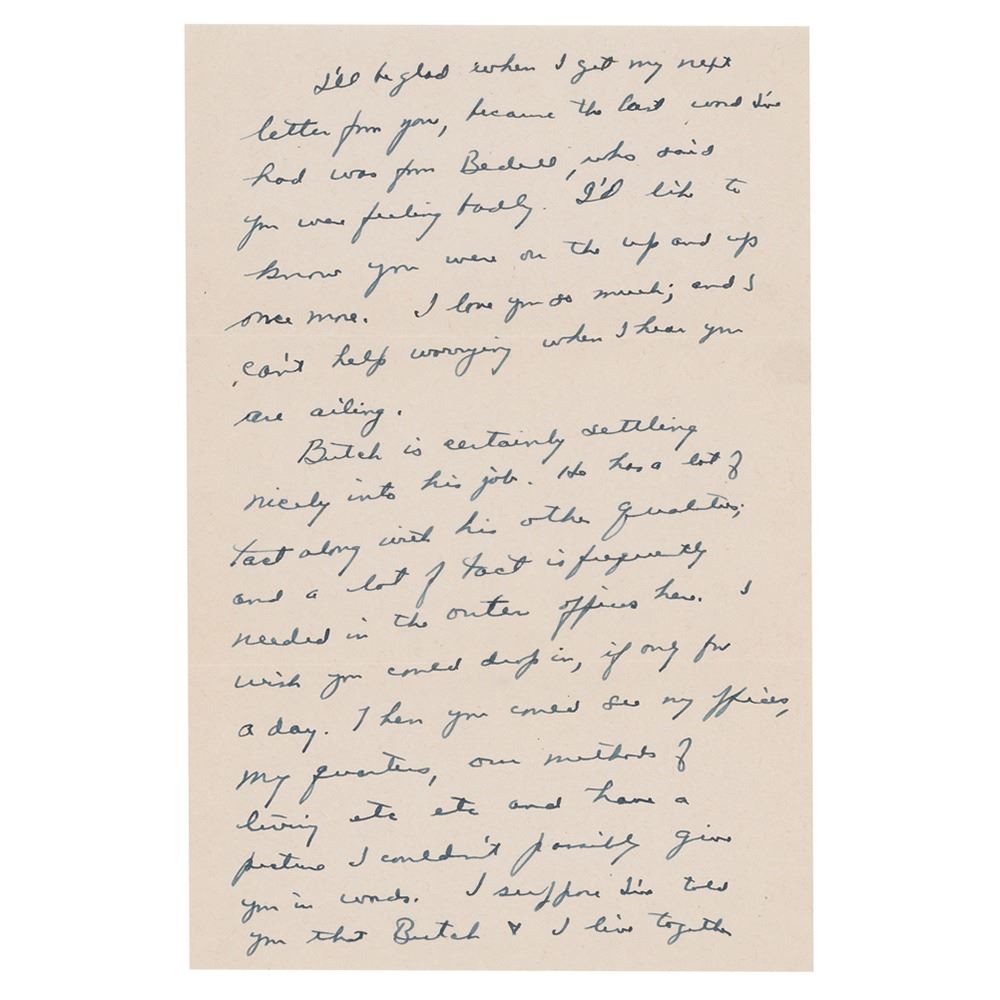 I'll be glad when I get my next
letter from you, because the last word I've
had was from Bedell, who said
you were feeling badly. I'd like to
know you were on the up and up
once more. I love you so much; and I
can't help worrying when I hear you
are ailing.
Butch is certainly settling
nicely into his job. He has a lot of
tact along with his other qualities;
and a lot of tact is frequently
needed in the outer offices here. I
wish you could drop in, if only for
a day. Then you could see my offices,
my quarters, our methods of
living etc etc and have a
picture I couldn't possibly give
you in words. I suppose I've told
you that Butch & I live together